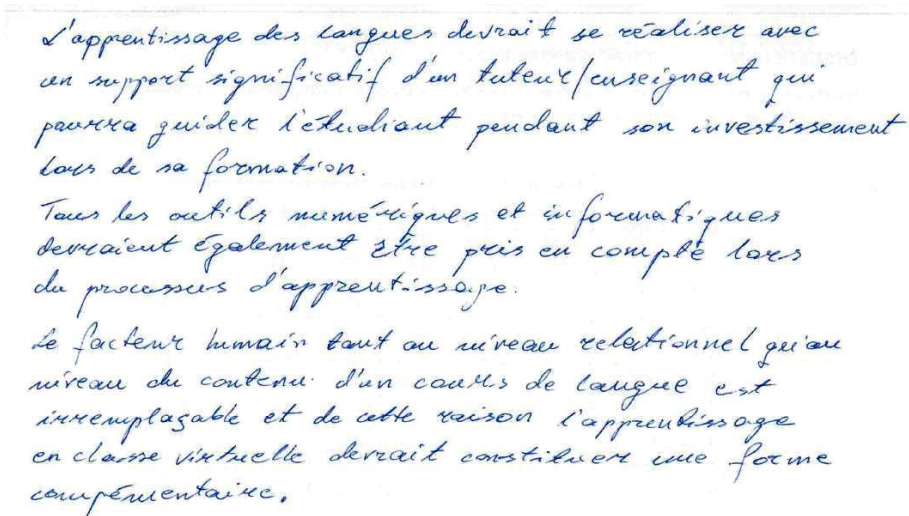 L'apprentissage des langues devrait se réaliser avec
un support significatif d'un tuteur/enseignant qui
pourra guider l'étudiant pendant son investissement
lors de sa formation.
Tous les outils numériques et informatiques
devraient également être pris en compte lors
du processus d'apprentissage.
Le facteur humain tant au niveau relationnel qu'au
niveau du contenu d'un cours de langue est
irremplaçable et de cette raison l'apprentissage
en classe virtuelle devrait constituer une forme
compémentaire.